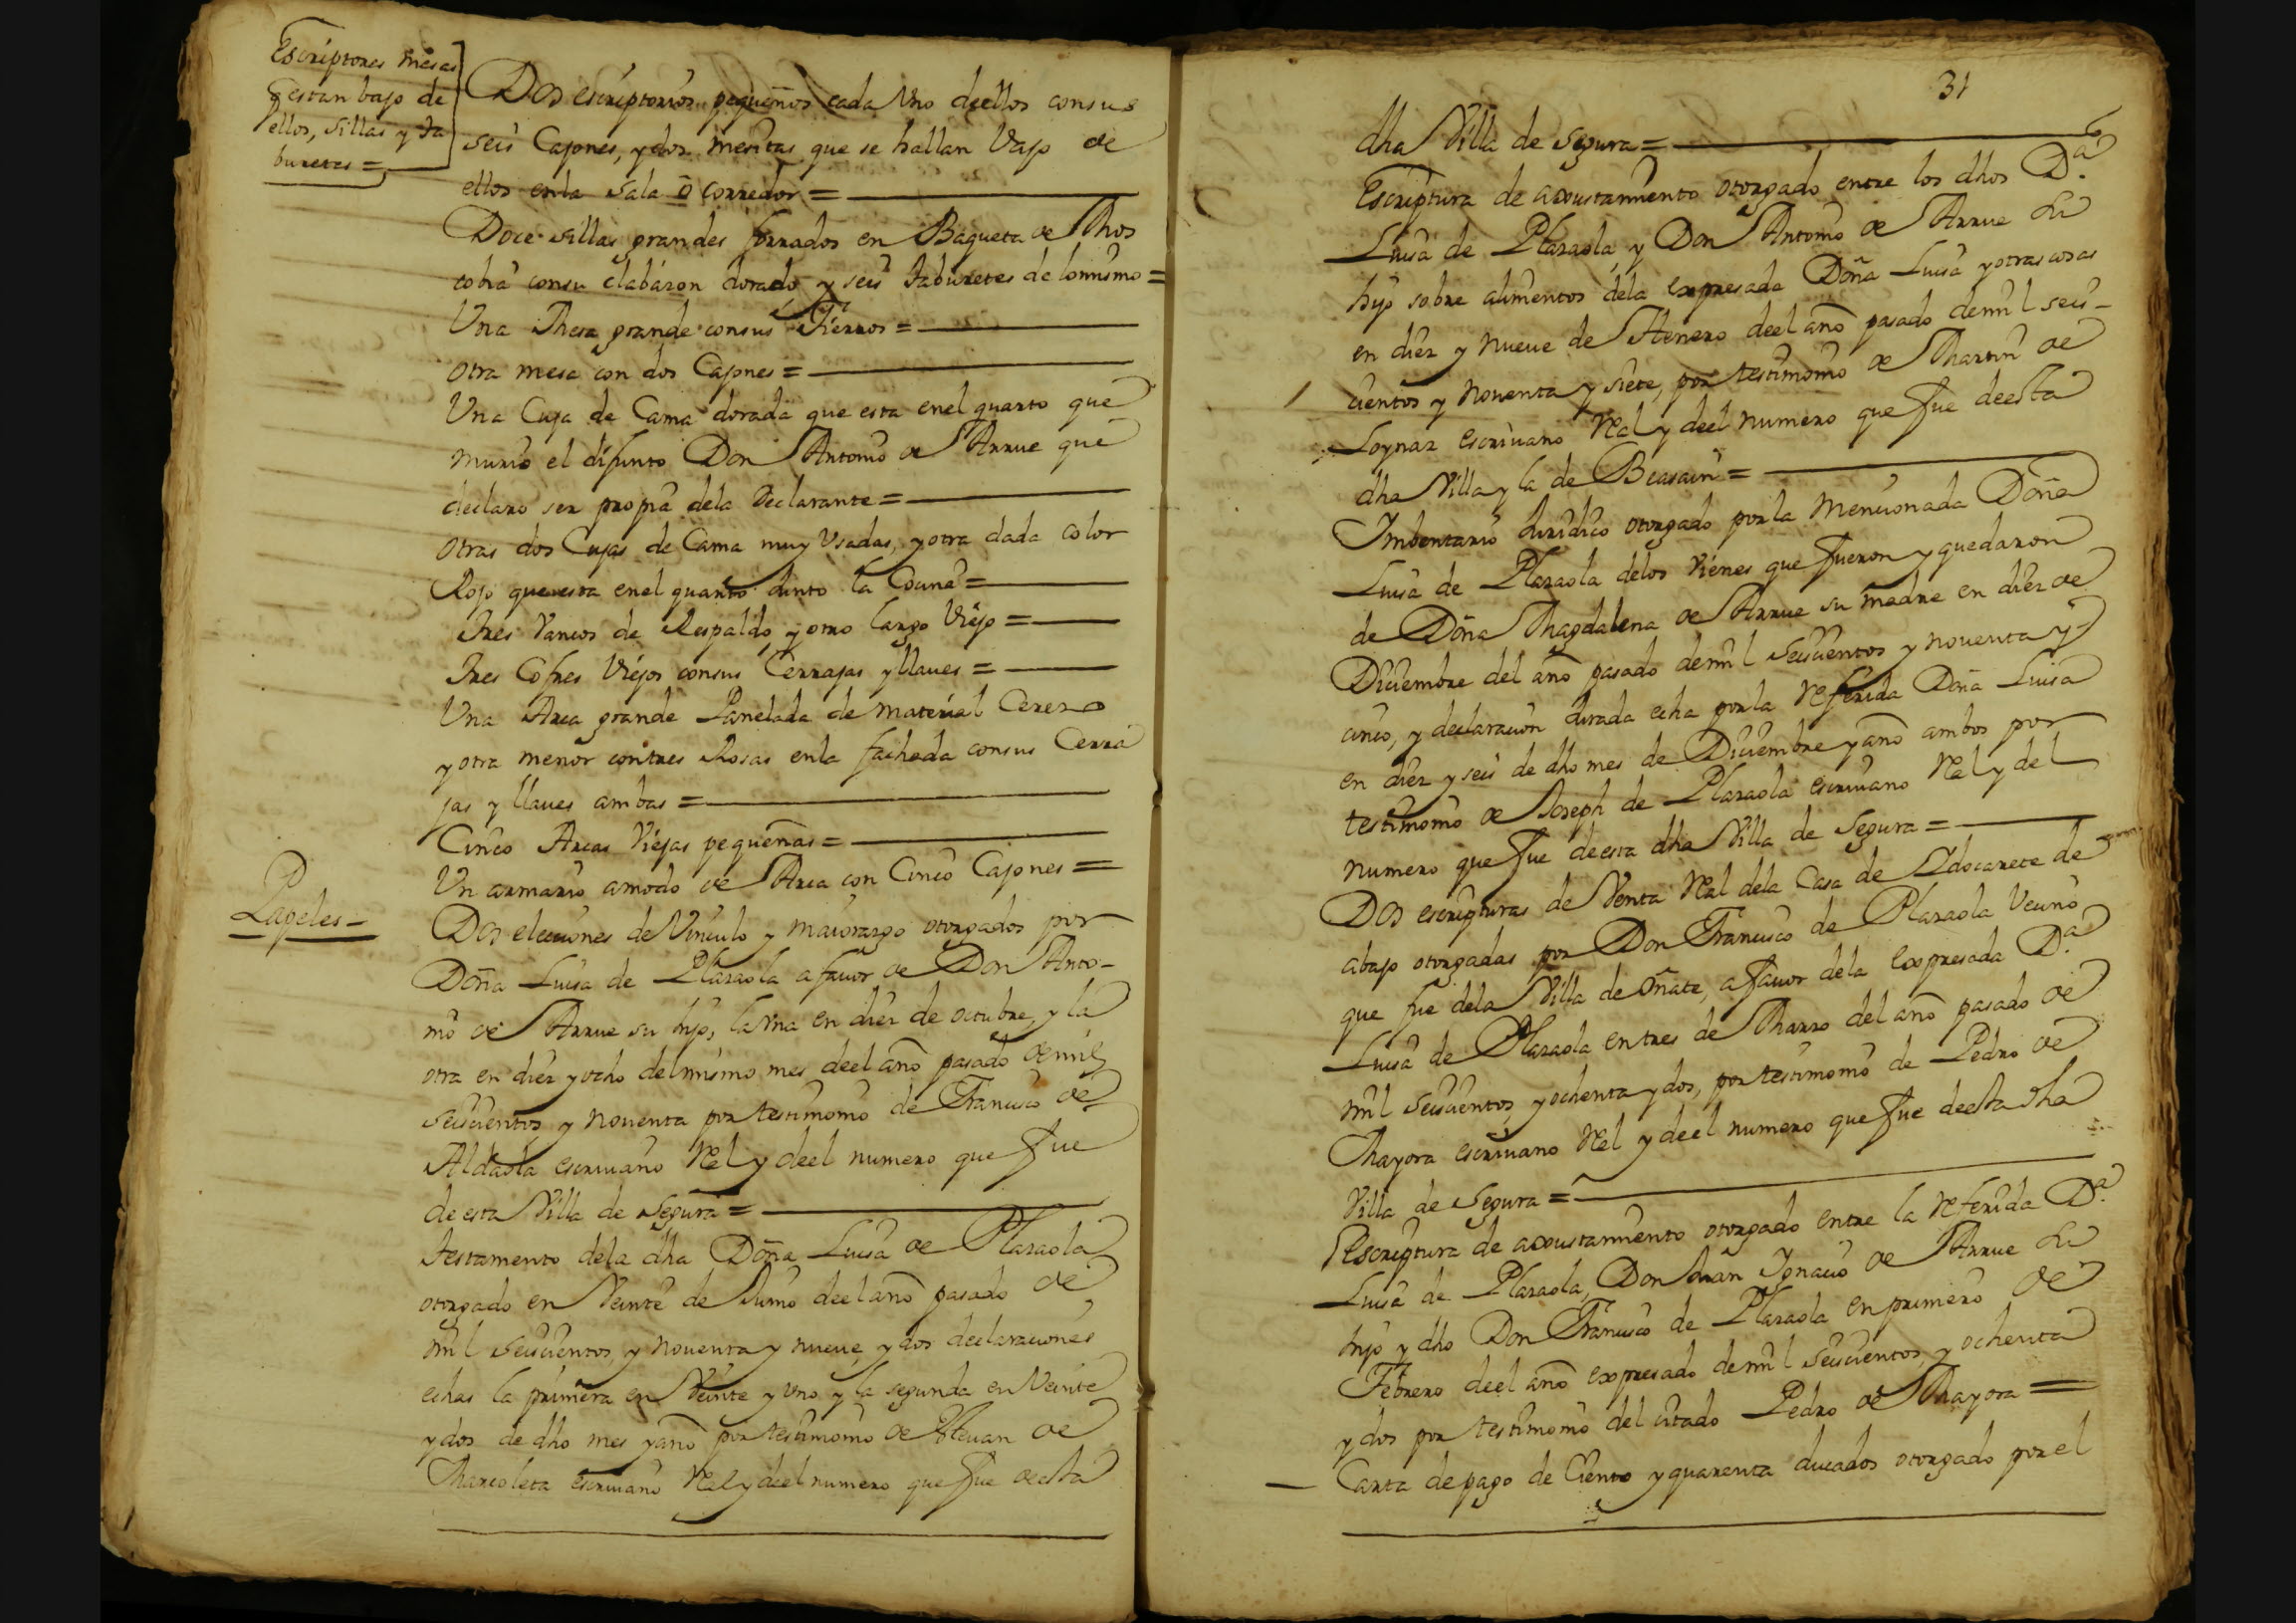 Escriptores mesas
q estan bajo de
ellos, sillas y ta
buretes =
Dos escriptorios pequeños cada Uno deellos consus
seis Cajones, y dos mesitas que se hallan Vajo de
ellos enla sala ō corredor =
Doce sillas grandes forrados en Baqueta de Mos
cobia consu clabazon dorado, y seis taburetes de lomismo =
Una Mesa grande consus Fierros =
otra mesa con dos Cajones =
Una Cuja de Cama dorada que esta enel quarto que
murio el difunto Don Antonio de Arrue que
declaro ser propia dela Declarante =
otras dos Cujas de Cama muy Usadas, y otra dada color
Rojo que esta enel quarto Junto la Cocina =
Tres Vancos de Respaldo, y otro largo Viejo =
Tres Cofres Viejos consus Cerrajas y llaves =
Una Arca grande Panelada de material Cerezo
y otra menor contres Rosas enla fachada consus Cerra
jas y llaues ambas =
Cinco Arcas Viejas pequeñas =
Un armario amodo de Arca con Cinco Cajones =
Papeles =
Dos elecciones de Vinculo y maiorazgo otorgados por
Doña Luisa de Plazaola a fauor de Don Anto-
nio de Arrue su hijo, la Una en diez de octubre, y la
otra en diez y ocho del mismo mes deel año pasado de mil
seiscientos y nouenta por testimonio de Francisco de
Aldaola escriuano Real y deel numero que fue
de esta Villa de Segura =
Testamento dela dha Doña Luisa de Plazaola
otorgado en Veinte de Junio deel año pasado de
mil seiscientos, y nouenta y nueue, y dos declaraciones
echas la primera en Veinte y Uno y la segunda en Veinte
y dos de dho mes y año por testimonio de Esteuan de
Marcoleta escriuano Real y deel numero que fue deesta
31
dha Villa de Segura =
Escriptura de axustamiento otorgado entre los dhos D.ª
Luisa de Plazaola, y Don Antonio de Arrue su
hijo sobre alimentos dela expresada Doña Luisa y otras cosas
en diez y nueue de Henero deel año pasado de mil seis-
cientos y nouenta y siete, por testimonio de Martin de
Loynaz escriuano Real y deel numero que fue deesta
dha Villa y la de Beasain =
Imbentario Juridico otorgado por la Mencionada Doña
Luisa de Plazaola delos Vienes que fueron y quedaron
de Doña Magdalena de Arrue su madre en diez de
Diciembre del año pasado de mil seiscientos y nouenta y
cinco, y declaracion Jurada echa por la Referida Doña Luisa
en diez y seis de dho mes de Diciembre y año ambos por
testimonio de Joseph de Plazaola escriuano Real y del
numero que fue de esta dha Villa de Segura =
Dos escripturas de Venta Real dela Casa de de
abajo otorgadas por Don Francisco de Plazaola Vecino
que fue dela Villa de Oñate, a fauor dela expresada D.ª
Luisa de Plazaola entres de Marzo del año pasado de
mil seiscientos, y ochenta y dos, por testimonio de Pedro de
Mayora escriuano Real y deel numero que fue deesta dha
Villa de Segura =
Escriptura de axoustamiento otorgado entre la Referida D.ª
Luisa de Plazaola, Don Juan Ignacio de Arrue su
hijo y dho Don Francisco de Plazaola en primero de
Febrero deel año expresado de mil seiscientos, y ochenta
y dos por testimonio del citado Pedro de Mayora =
Carta de pago de Ciento y quarenta ducados otorgado por el